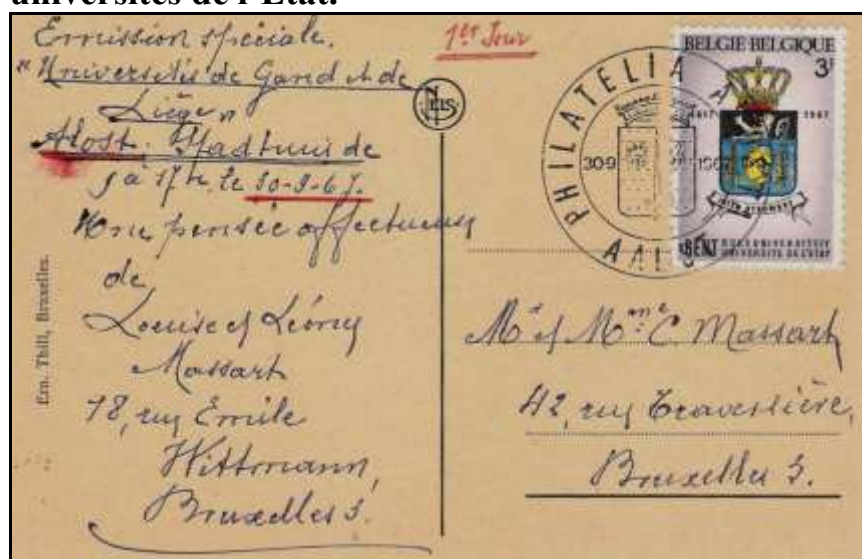 universités de l'Etat.
Emission spéciale.
1er Jour
"Universités de Gand et de
Liège"
Alost. Stadhuis de
à 17h. le 30-9-67.
Une pensée affectueuse
de
Louise et Léony
Massart
78, rue Emile
Wittmann,
Bruxelles 3.
Ern. Thill, Bruxelles.
PHILATELIA
30-9
1967
AALST
BELGIE BELGIQUE
3F
1817 1967
GENT RIJKSUNIVERSITEIT
UNIVERSITE DE L'ETAT
Mr et Mme C. Massart
42, rue Traversière,
Bruxelles 3.